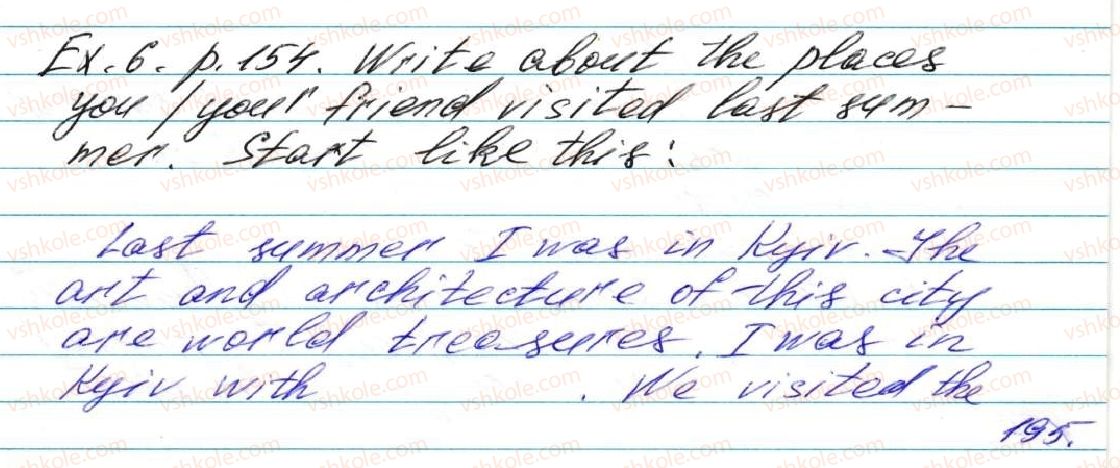 Ex. 6. p. 154. Write about the places
you / your friend visited last sum-
mer. Start like this:
Last summer I was in Kyiv. The
art and architecture of this city
are world treasures. I was in
Kyiv with . We visited the
195.